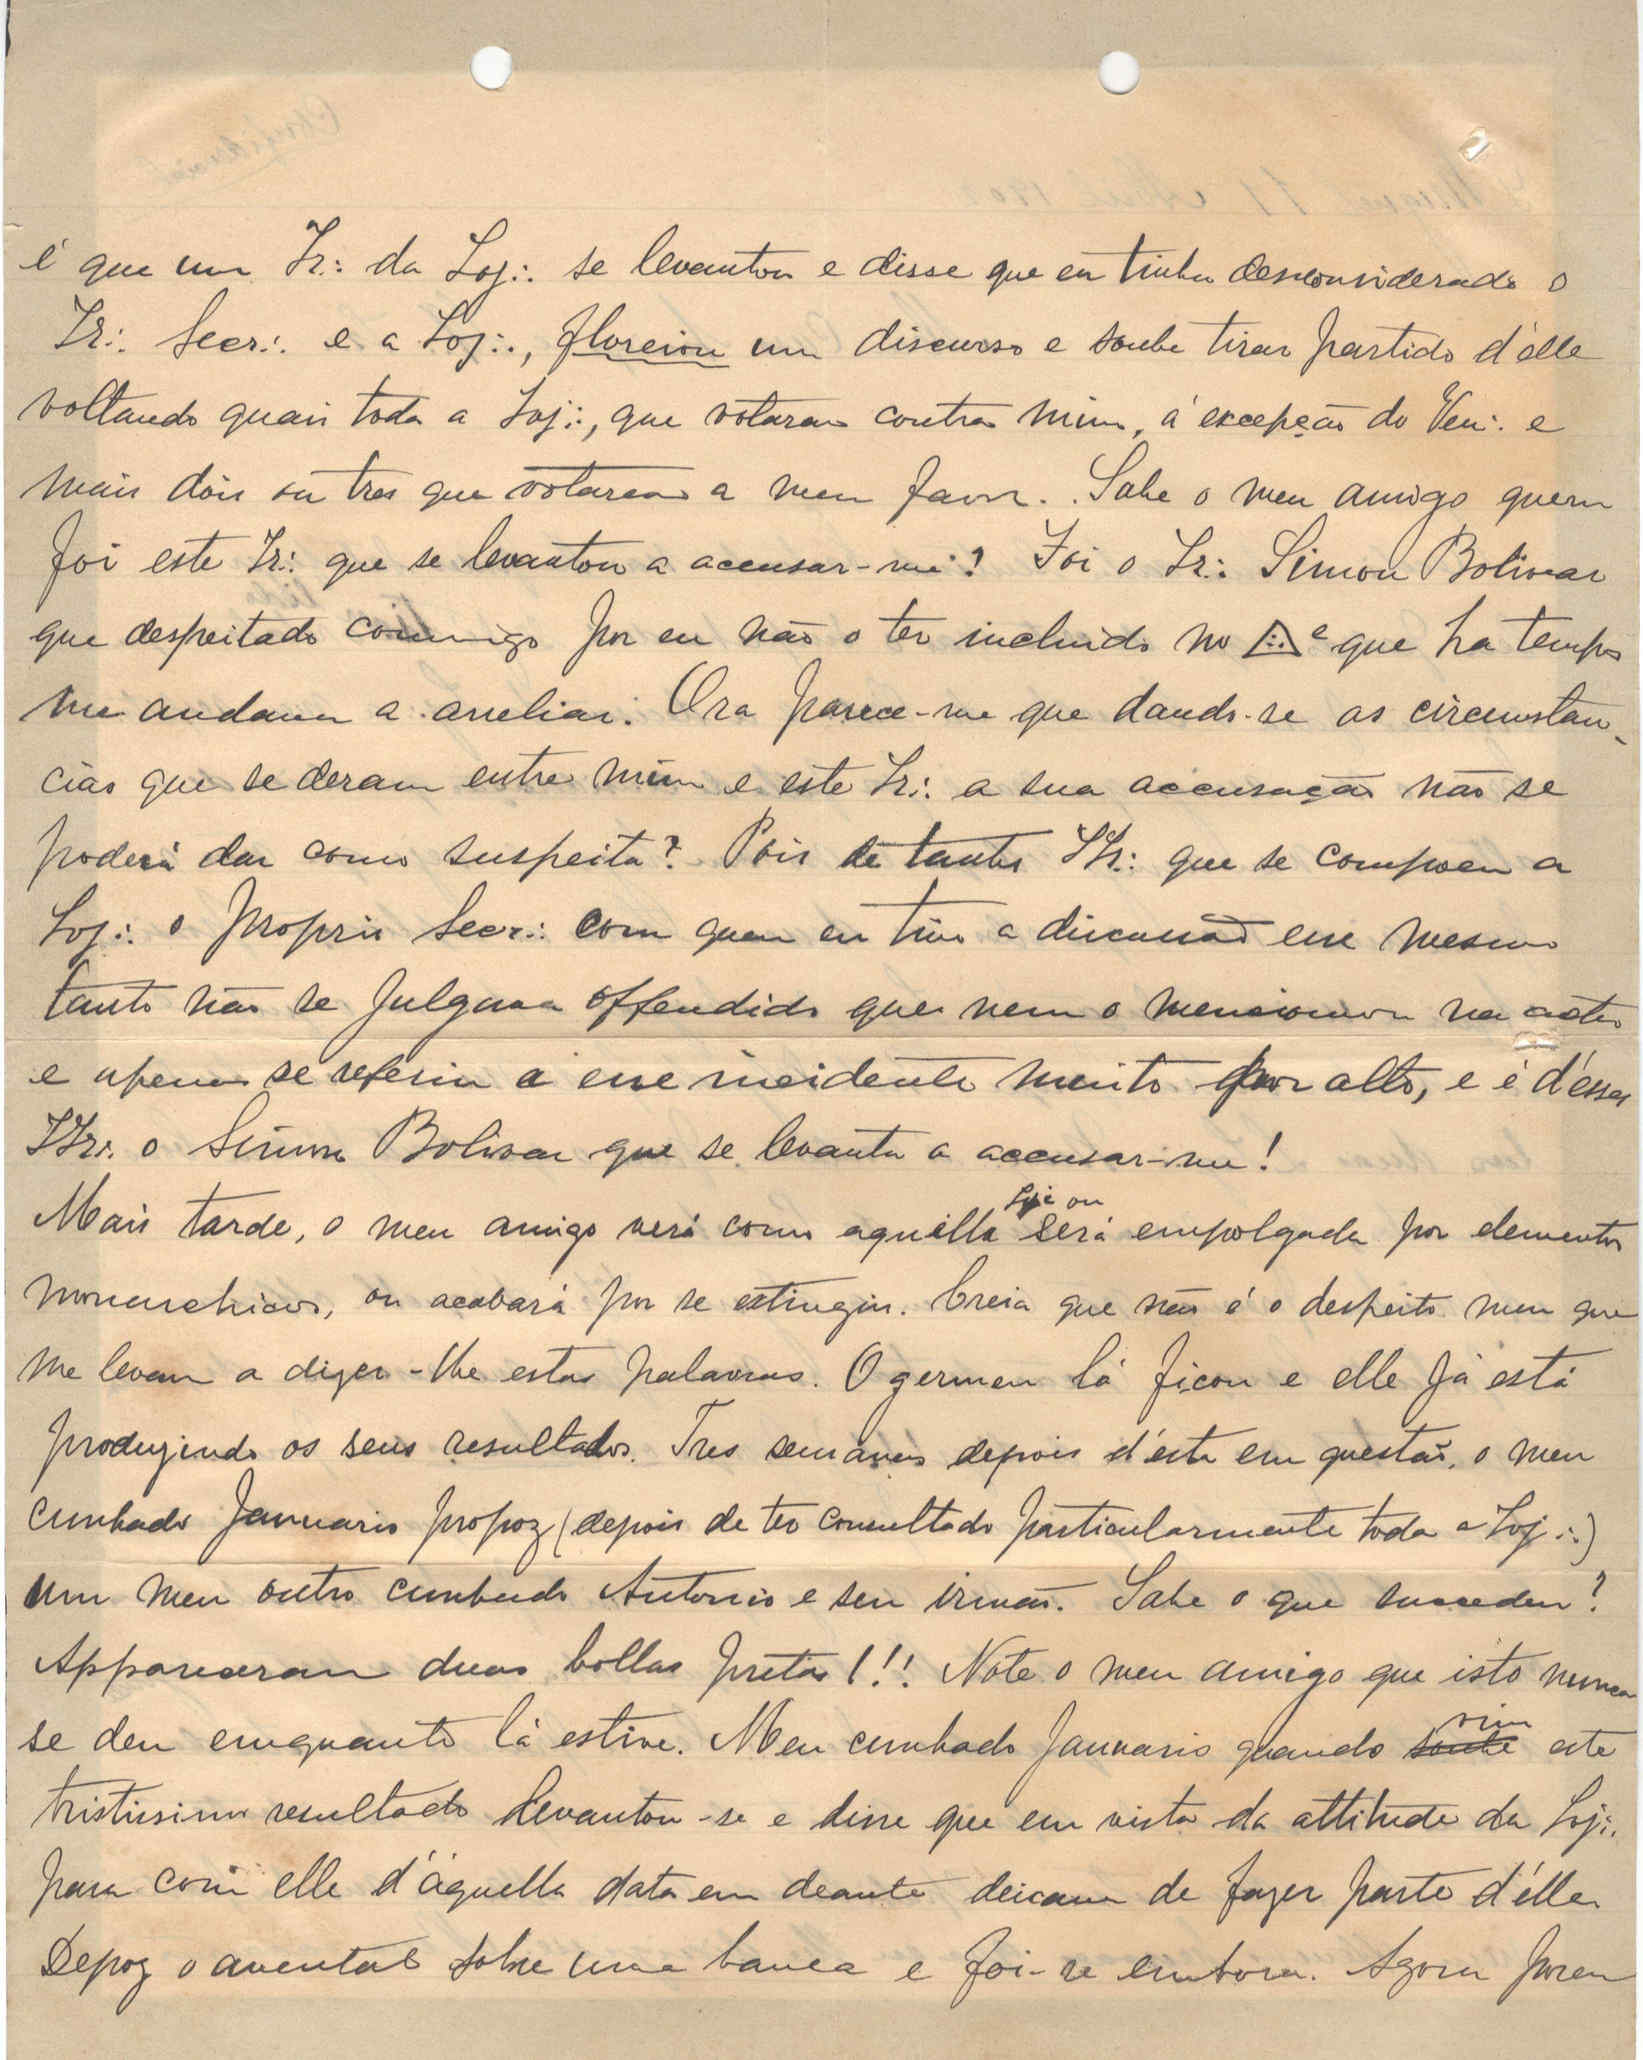 é que um Ir∴ da Loj∴ se levantou e disse que eu tinha desconsiderado o
Ir∴ Secr∴ e a Loj∴, floreiou um discurso e soube tirar partido d'elle
voltando quasi toda a Loj∴, que votaram contra mim, á excepção do Ven∴ e
mais dois ou tres que votaram a meu favor. Sabe o meu amigo quem
foi este Ir∴ que se levantou a accusar-me? Foi o Ir∴ Simon Bolivar
que despeitado commigo por eu não o ter incluido no que ha tempos
me andava a anceliar. Ora parece-me que dando-se as circumstan-
cias que se deram entre mim e este Ir∴ a sua accusação não se
poderá dar como suspeita? Pois de tantos IIr∴ que se compoem a
Loj∴ o proprio Secr∴ com quem eu tive a discussão esse mesmo
tanto não se julgava offendido que nem o mencionou na acta
e apenas se referiu a esse incidente muito por alto, e é d'esses
IIr∴ o Simon Bolivar que se levanta a accusar-me!
Mais tarde, o meu amigo verá como aquella Loj∴ ou será empolgada por elementos
monarchicos, ou acabará por se extinguir. Creia que não é o despeito meu que
me levam a dizer-lhe estas palavras. O germen lá ficou e elle já está
produzindo os seus resultados. Tres semanas depois d'esta em questão, o meu
cunhado Januario propoz (depois de ter consultado particularmente toda a Loj∴)
um meu outro cunhado Antonio e seu irmão. Sabe o que succedeu?
Appareceram duas bollas pretas!!! Note o meu amigo que isto nunca
se deu emquanto lá estive. Meu cunhado Januario quando soube viu este
tristissimo resultado levantou-se e disse que em vista da attitude da Loj∴
para com elle d'áquella data em deante deixava de fazer parte d'élla.
Depoz o avental sobre uma banca e foi-se embora. Agora porem